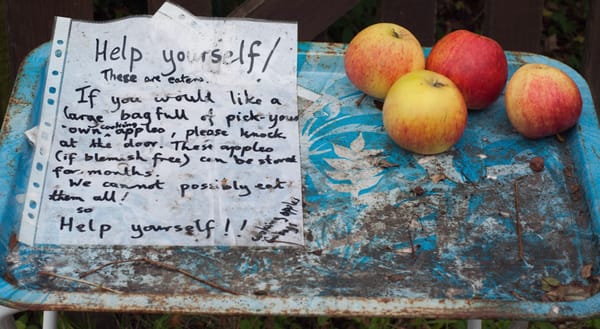 Help yourself!
These are eaters.
If you would like a
large bag full of pick-your
-own cooking apples, please knock
at the door. These apples
(if blemish free) can be stored
for months.
We cannot possibly eat
them all!
so
Help yourself!!